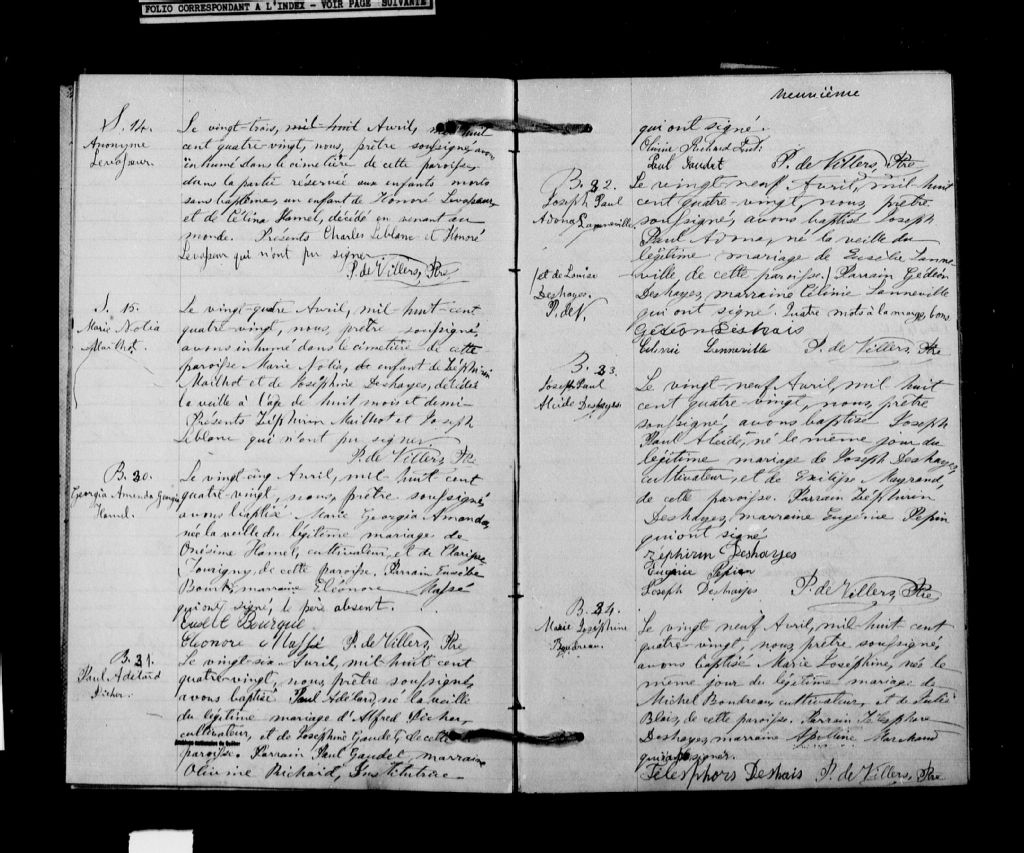 FOLIO CORRESPONDANT A L'INDEX - VOIR PAGE SUIVANTE
S. 14.
Anonyme
Levasseur.
Le vingt-trois, mil-huit Avril, mil huit
cent quatre-vingt, nous, prêtre soussigné, avons
inhumé dans le cimetière de cette paroisse,
dans la partie réservée aux enfants morts
sans baptême, un enfant de Honoré Levasseur
et de Célina Hamel, décédé en venant au
monde. Présents Charles Leblanc et Honoré
Levasseur qui n'ont pu signer
P. de Villers, Ptre
S. 15.
Marie Notia
Mailhot.
Le vingt-quatre Avril, mil huit-cent
quatre-vingt, nous, prêtre soussigné,
avons inhumé dans le cimetière de cette
paroisse Marie Notia, enfant de Zéphirin
Mailhot et de Joséphine Deshayes, décédée
la veille à l'âge de huit mois et demi
Présents Zéphirin Mailhot et Joseph
Leblanc qui n'ont pu signer
P. de Villers, Ptre
B. 20.
Georgia Amanda Georgia
Hamel.
Le vingt-cinq Avril, mil-huit cent
quatre-vingt, nous, prêtre soussigné,
avons baptisé Marie Georgia Amanda,
née la veille du légitime mariage de
Onésime Hamel, cultivateur, et de Clarisse
Tourigny, de cette paroisse. Parrain Eusèbe
Bourk, marraine Eléonore Massé
qui ont signé, le père absent.
Eusèbe Bourque
Eléonore Massé P. de Villers, Ptre
B. 21.
Paul Adélard
Picher.
Le vingt-six Avril, mil-huit cent
quatre-vingt, nous, prêtre soussigné,
avons baptisé Paul Adélard, né la veille
du légitime mariage d'Alfred Picher,
cultivateur, et de Josephine Gaudet, de cette
Archives nationales du Québec
paroisse. Parrain Paul Gaudet, marraine
Olivine Richard, Institutrice
neuvième
qui ont signé.
Olivine Richard Insti.
Paul Gaudet P. de Villers, Ptre
B. 22.
Joseph Paul
Adona Lanneville.
Le vingt-neuf Avril, mil huit
cent quatre-vingt, nous, prêtre
soussigné, avons baptisé Joseph
Paul Adona, né la veille du
légitime mariage de Eusèbe Lanne-
ville, de cette paroisse. Parrain Gédéon
Deshayes, marraine Célinie Lanneville
qui ont signé. Quatre mots à la marge, bons
/et de Louise
Deshayes.
P. de V.
Gédéon Deshais
Lanneville P. de Villers, Ptre
B. 23.
Joseph Paul
Alcide Deshayes
Le vingt-neuf Avril, mil huit
cent quatre-vingt, nous, prêtre
soussigné, avons baptisé Joseph
Paul Alcide, né le même jour du
légitime mariage de Joseph Deshayes,
cultivateur, et de Exilife Mayrand,
de cette paroisse. Parrain Zéphirin
Deshayes, marraine Eugénie Pepin
qui ont signé
Zéphirin Deshayes
Eugénie Pepin
Joseph Deshayes P. de Villers, Ptre
B. 24.
Marie Joséphine
Boudreau.
Le vingt neuf Avril, mil-huit cent
quatre-vingt, nous, prêtre soussigné,
avons baptisé Marie Josephine, née le
même jour du légitime mariage de
Michel Boudreau cultivateur, et de Julie
Blais, de cette paroisse. Parrain Télesphore
Deshayes, marraine Apolline Marchand
qui ont signer.
Télesphors Deshais P. de Villers, Ptre